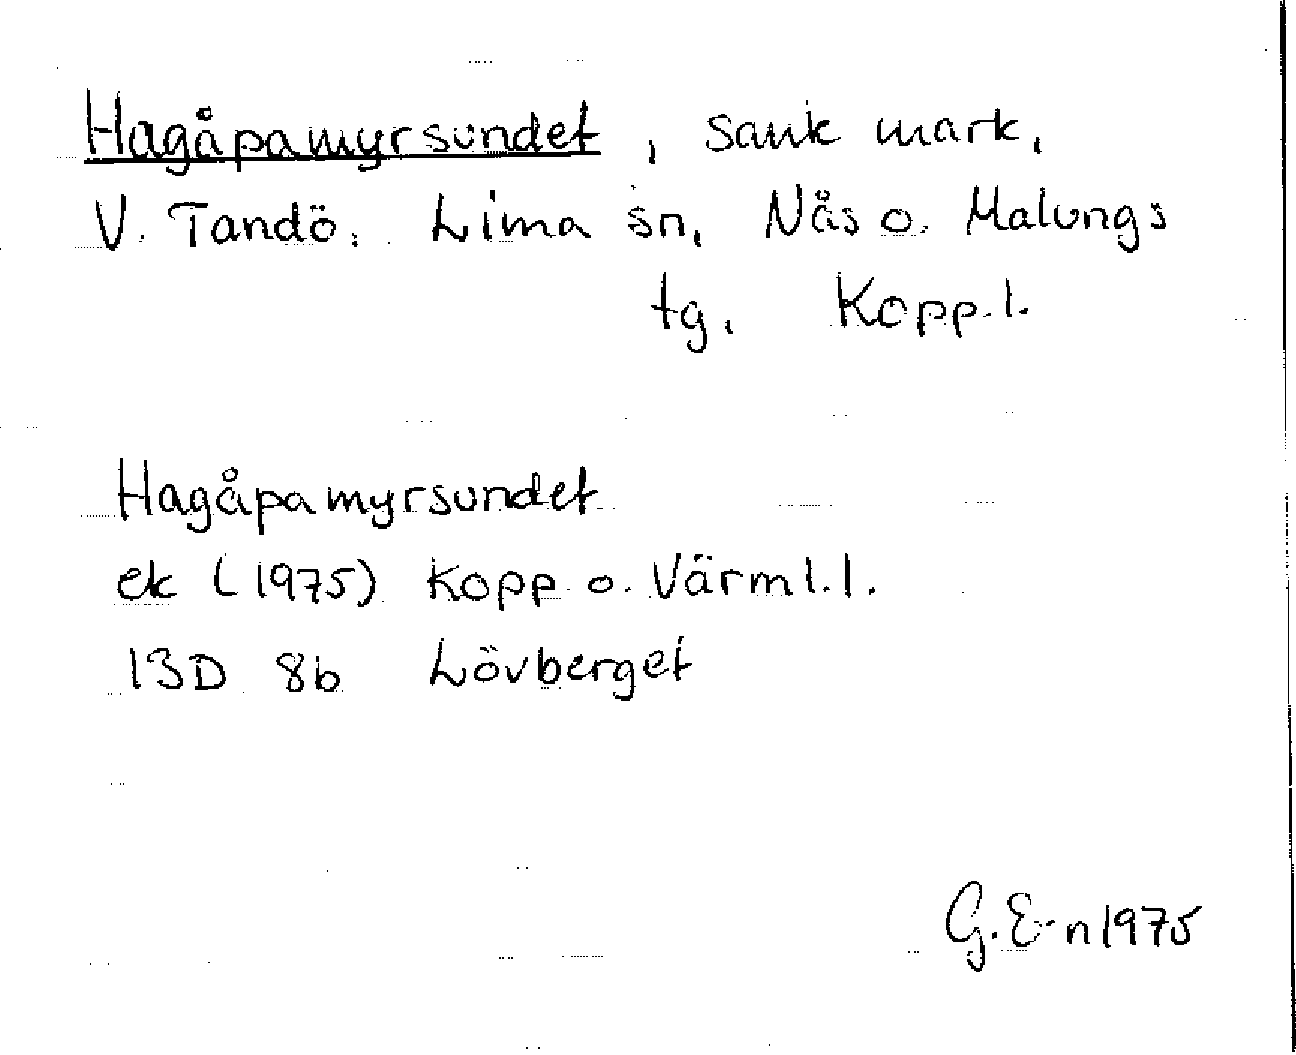 Hagåpamyrsundet, sank mark,
V. Tandö, Lima sn, Nås o. Malungs
tg, Kopp.l.
Hagåpamyrsundet
ek (1975) Kopp o. Värml.l.
13D 8b Lövberget
G. E-n 1975